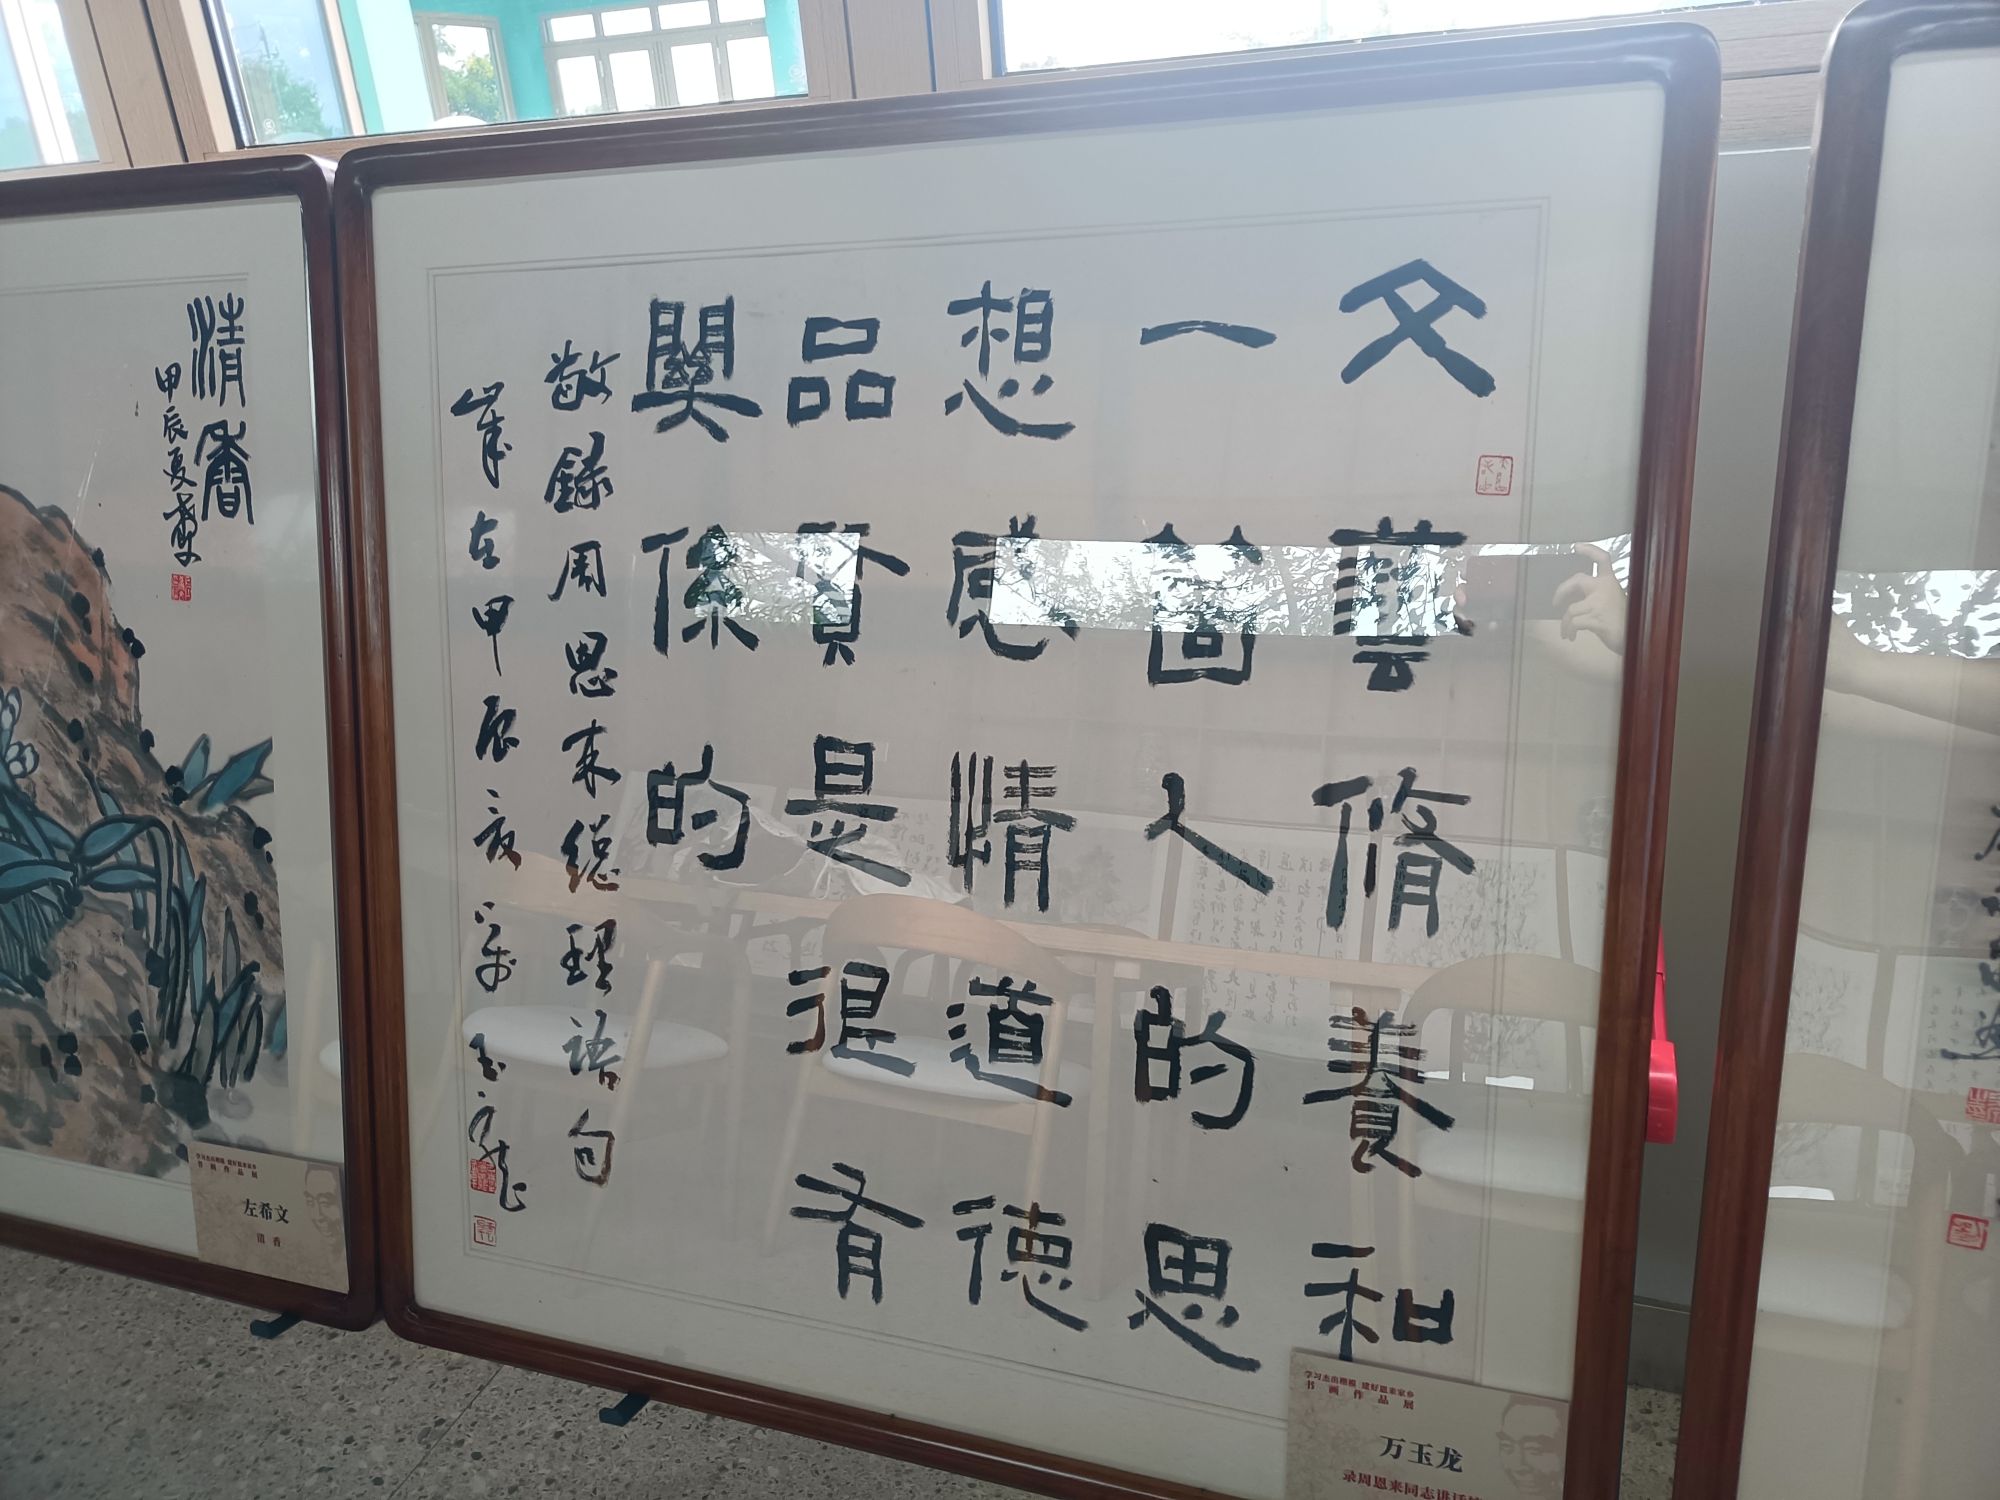 文藝脩養和
一箇人的思
想感情道德
品質是很有
關係的
敬録周恩来總理語句
岁在甲辰之夏万玉龙
学习杰出楷模 建好恩来家乡
书画作品展
万玉龙
录周恩来同志讲话
清香
甲辰夏
学习杰出楷模 建好恩来家乡
书画作品展
左希文
清香